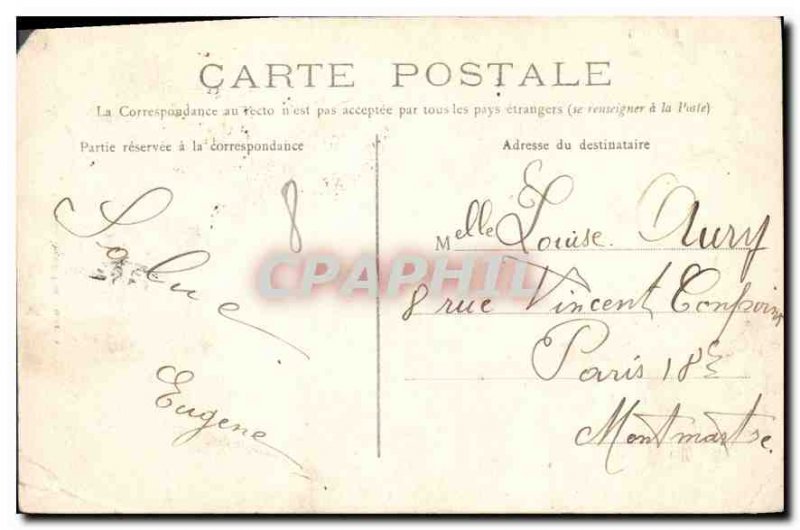 CARTE POSTALE
La Correspondance au recto n'est pas acceptée par tous les pays étrangers (se renseigner à la Poste)
Partie réservée à la correspondance
Adresse du destinataire
8
Salue
Eugene
Melle Louise Aury
8 rue Vincent Compoint
Paris 18e
Montmartre.
CPAPHIL